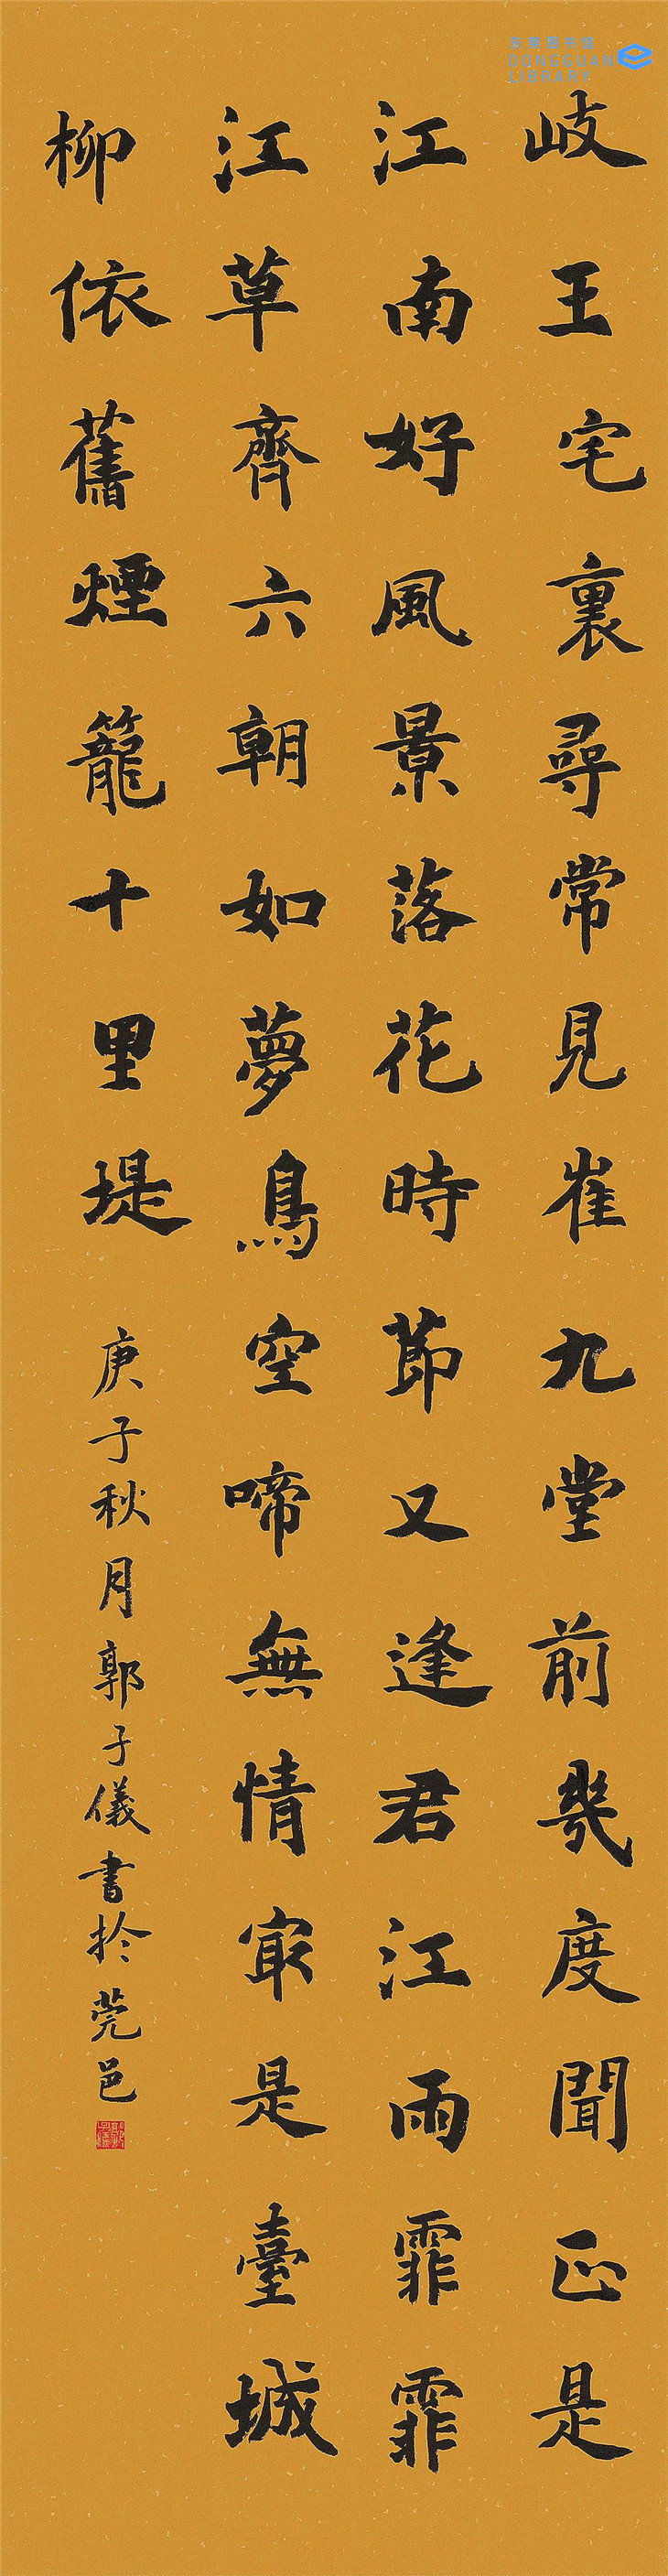 东莞图书馆
DONGGUAN
LIBRARY
岐王宅裏尋常見崔九堂前幾度聞正是
江南好風景落花時節又逢君江雨霏霏
江草齊六朝如夢鳥空啼無情冣是臺城
柳依舊煙籠十里堤 庚子秋月郭子儀書於莞邑